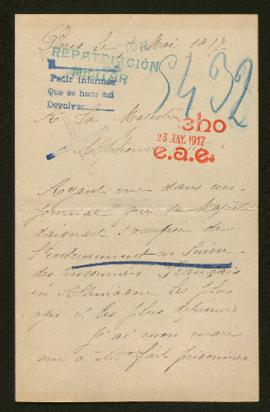 Paris le Mai 1917
REPATRIACIÓN
MILITAR
Pedir informes
Que se haga así
Devolver
5432
A Sa Majesté
cho
23 MAY. 1917
e.a.e.
Alphonse
Ayant vu dans un
journal que sa Majesté
daignait s'occuper de
l'internement en Suisse
des prisonniers Français
en Allemagne les plus
agés et les plus
J'ai mon mari
qui a été fait prisonnier